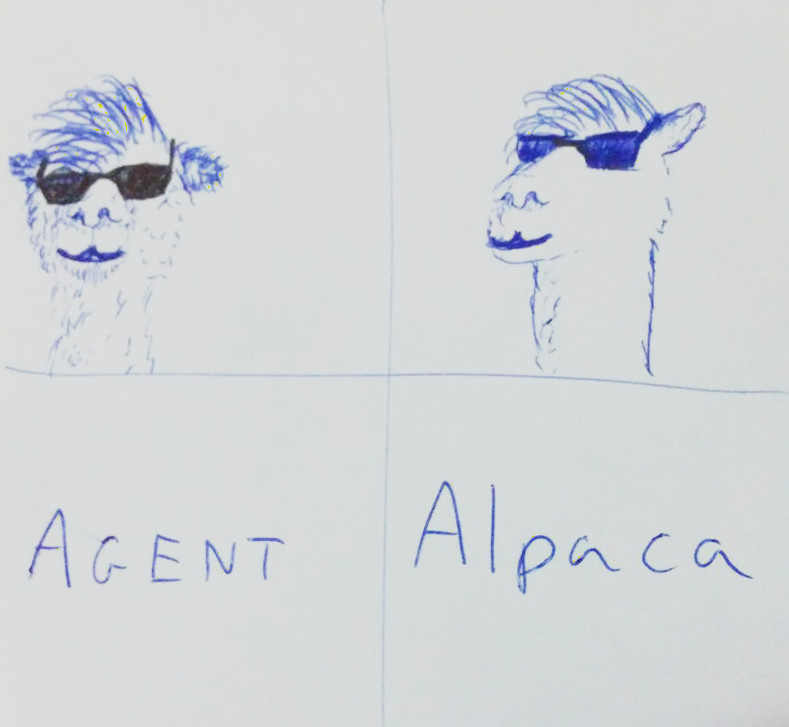 AGENT
Alpaca